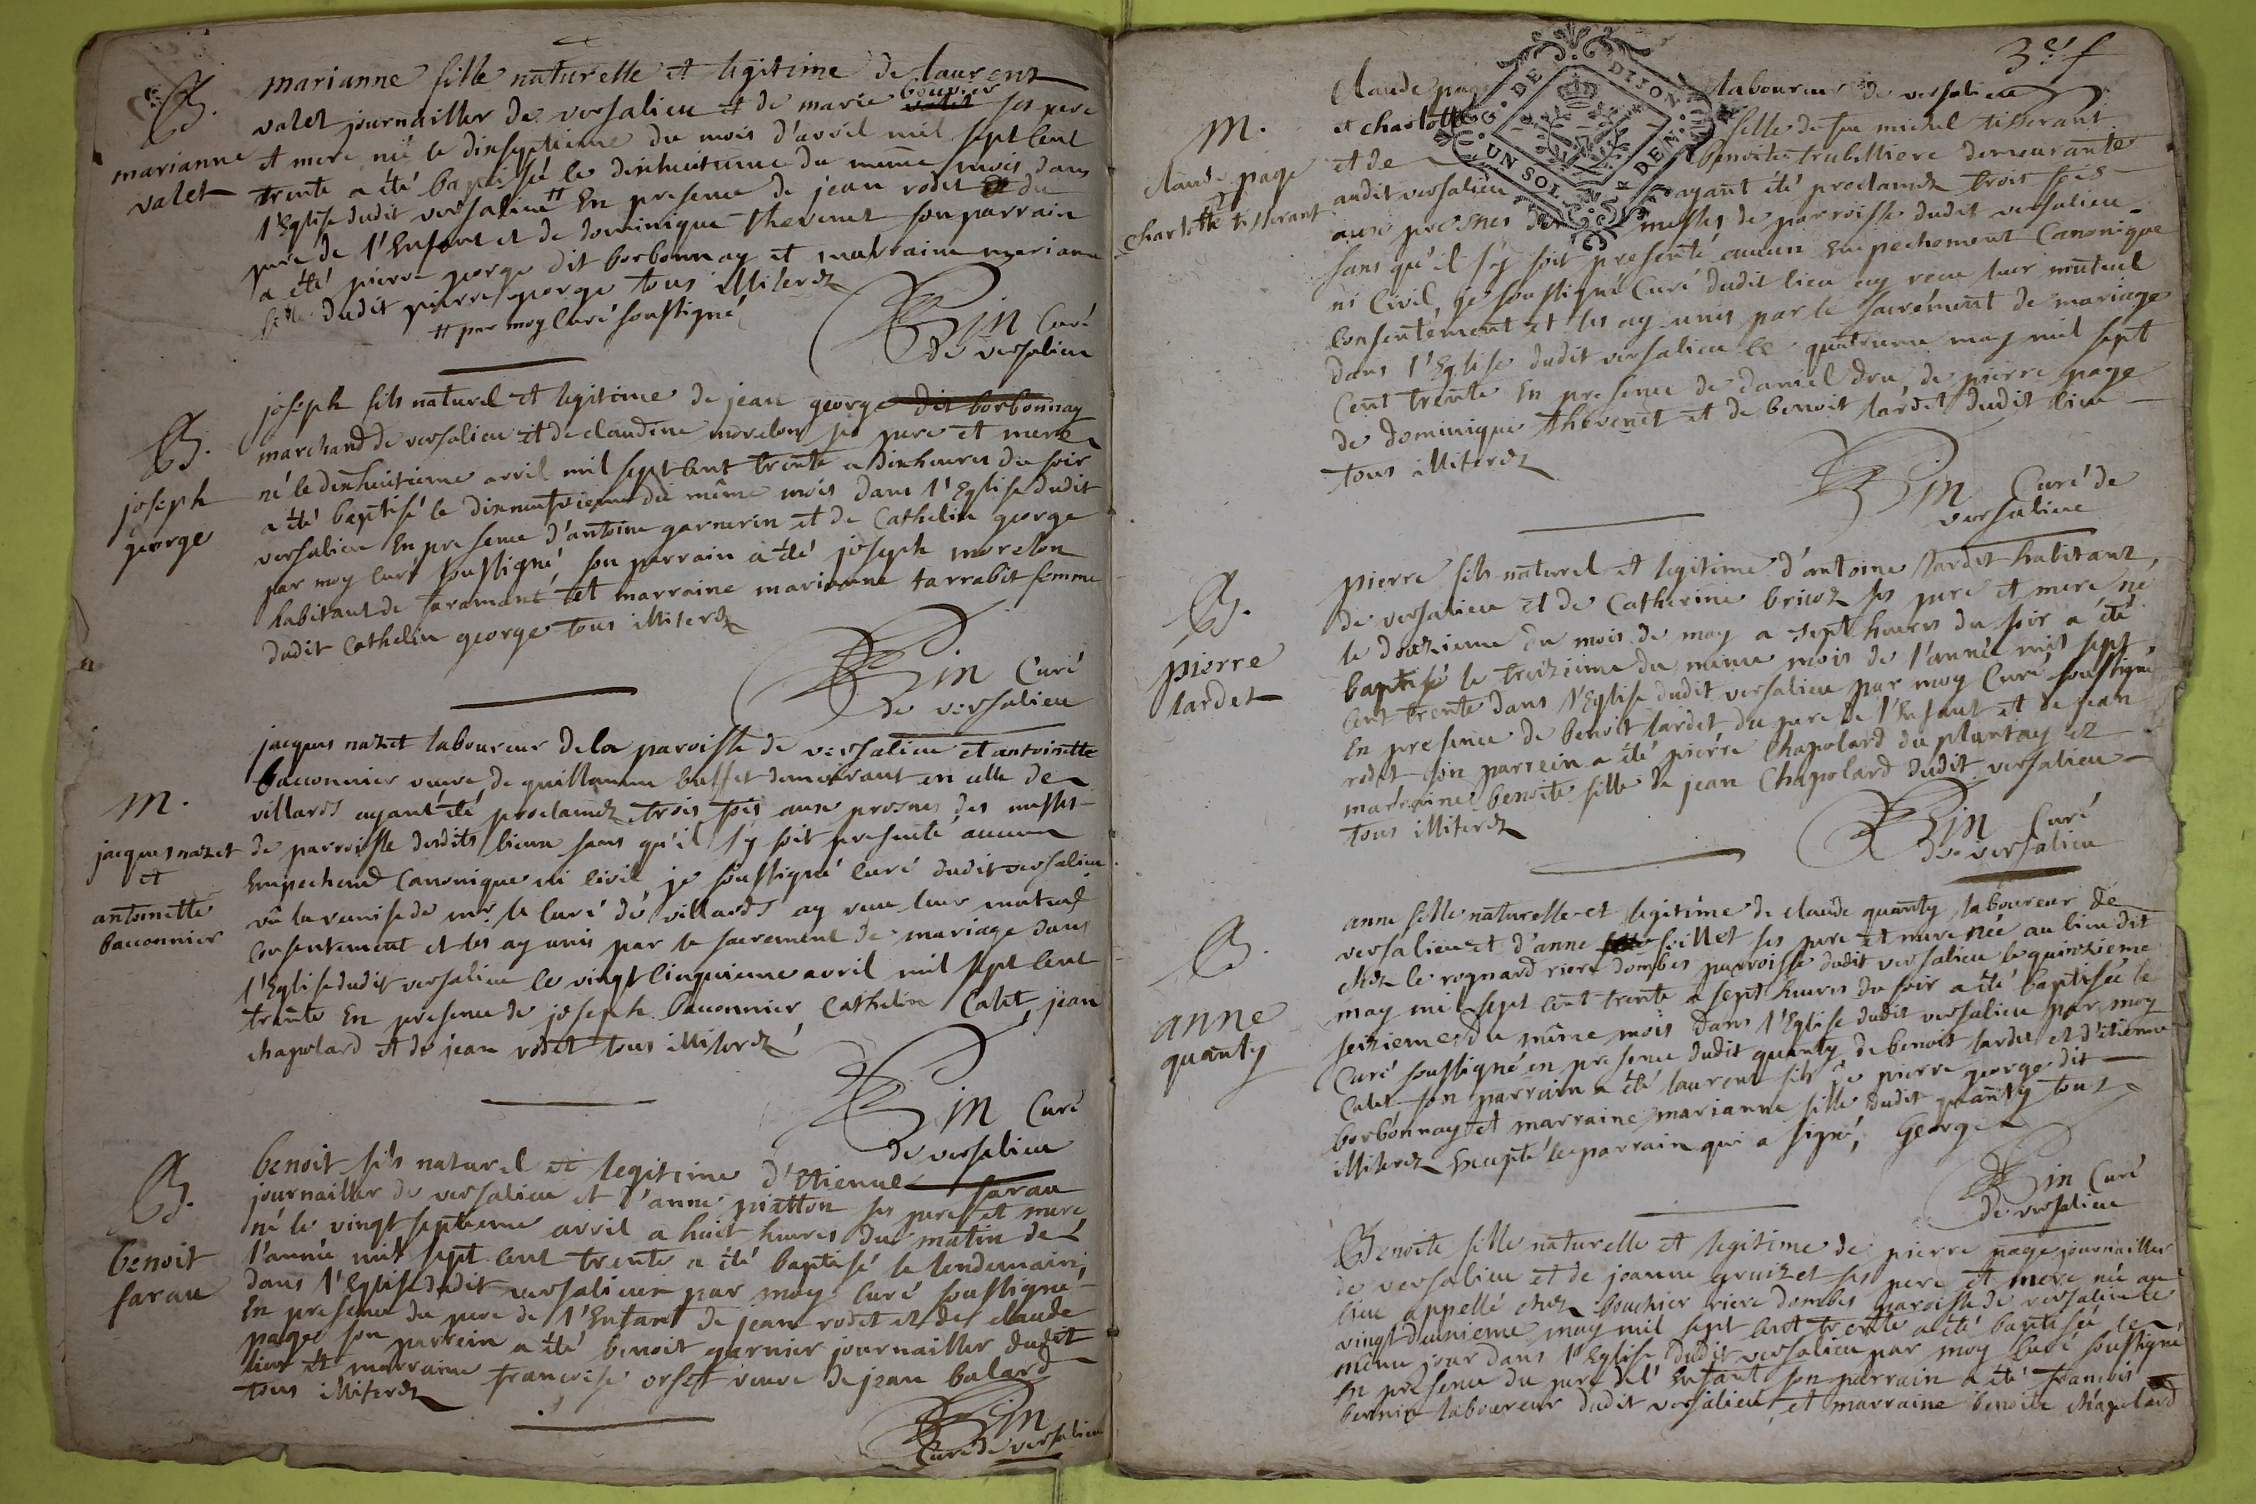 B.
marianne
valet
marianne fille naturelle et legitime de laurent
valet journallier de versalieu et de marie bouvier ses pere
et mere née le dixseptieme du mois d'avril mil sept cent
trente a été baptisée le dixhuitieme du meme mois dans
l'Eglise dudit versalieu # En presence de jean rodet et du
pere de l'Enfant et de dominique thevenet son parrain
a été pierre george dit borbonnay et marraine mariane
fille dudit pierre george tous illiterez
# par moy Curé soussigné
Bin Curé
de versalieu
B.
joseph
george
joseph fils naturel et legitime de jean george dit borbonnay
marchand de versalieu et de claudine morelon ses pere et mere
né le dixhuitieme avril mil sept cent trente a dixheures du soir
a été baptisé le dixneufvieme du même mois dans l'Eglise dudit
versalieu En presence d'antoine garnerin et de Cathelin george
par moy curé soussigné son parrain a été joseph morelon
habitant de faramant et marraine marianne tarrabit femme
dudit Cathelin george tous illiterez
Bin Curé
de versalieu
m.
jacques nazet
et
antoinette
baconnier
jacques nazet laboureur de la paroisse de versalieu et antoinette
baconnier veuve de guillaume buffet demeurant en celle de
villards ayant été proclamez trois fois aux prosnes des messes
de parroisse desdits lieux sans qu'il s'y soit presenté aucun
Empechemt Canonique ni Civil, je soussigné Curé dudit versalieu
vû la remise de mr. le Curé de villards ay reçu leur mutuel
Consentement et les ay unis par le sacrement de mariage dans
l'Eglise dudit versalieu le vingt Cinquieme avril mil sept cent
trente En presence de joseph baconnier Cathelin Calet, jean
chapolard et de jean rodet tous illiterez
Bin Curé
de versalieu
B.
benoit
farau
benoit fils naturel et legitime d'Etienne farau
journallier de versalieu et d'anne piatton ses pere et mere
né le vingt septieme avril a huit heures du matin de
l'année mil sept cent trente a été baptisé le lendemain
dans l'Eglise dudit versalieu par moy Curé soussigné
En presence du pere de l'Enfant de jean rodet et de claude
page son parrein a été benoit garnier journallier dudit
lieu et marraine françoise orset veuve de jean balard
tous illiterez
Bin
Curé de versalieu
3e. f
m.
claude page
et
charlotte tisserant
Claude page laboureur de versalieu
et charlotte fille de feu michel tisserant
et de benoite trubilliere demeurante
audit versalieu ayant été proclamez trois fois
aux prosnes des messes de parroisse dudit versalieu
sans qu'il s'y soit presenté aucun Empechement Canonique
ni Civil, je soussigné Curé dudit lieu ay reçu leur mutuel
Consentement et les ay unis par le sacrement de mariage
dans l'Eglise dudit versalieu le quatrieme may mil sept
Cent trente En presence de daniel dru, de pierre page
de dominique thevenet et de benoit lardet dudit lieu
tous illiterez
G. DE DIJON
UN SOL. 4 DEN.
Bin Curé de
versalieu
B.
pierre
lardet
pierre fils naturel et legitime d'antoine lardet habitant
de versalieu et de Catherine bricot ses pere et mere né
le douzieme du mois de may a sept heures du soir a été
baptisé le treizieme du meme mois de l'année mil sept
cent trente dans l'Eglise dudit versalieu par moy Curé soussigné
En presence de benoit lardet du pere de l'Enfant et de jean
rodet son parrein a été pierre Chapolard du plantay et
marraine benoite fille de jean Chapolard dudit versalieu
tous illiterez
Bin Curé
de versalieu
B.
anne
quanty
anne fille naturelle et legitime de claude quanty laboureur de
versalieu et d'anne feillet ses pere et mere née au lieu dit
chez le rognard riere dombes parroisse dudit versalieu le quinzieme
may mil sept cent trente a sept heures du soir a été baptisée le
seizieme du même mois dans l'Eglise dudit versalieu par moy
Curé soussigné en presence dudit quanty de benoit lardet et d'etienne
Calet son parrain a été laurent fils de pierre george dit
borbonnay et marraine marianne fille dudit quanty tous
illiterez Excepté le parrain qui a signé, George
Bin Curé
de versalieu
Benoite fille naturelle et legitime de pierre page journallier
de versalieu et de jeanne gruizet ses pere et mere née au
lieu appellé chez bouchier riere dombes paroisse de versalieu le
vingt deuxieme may mil sept cent trente a été baptisée le
même jour dans l'Eglise dudit versalieu par moy Curé soussigné
En presence du pere de l'Enfant son parrain a été françois
bernin laboureur dudit versalieu, et marraine benoite chapolard